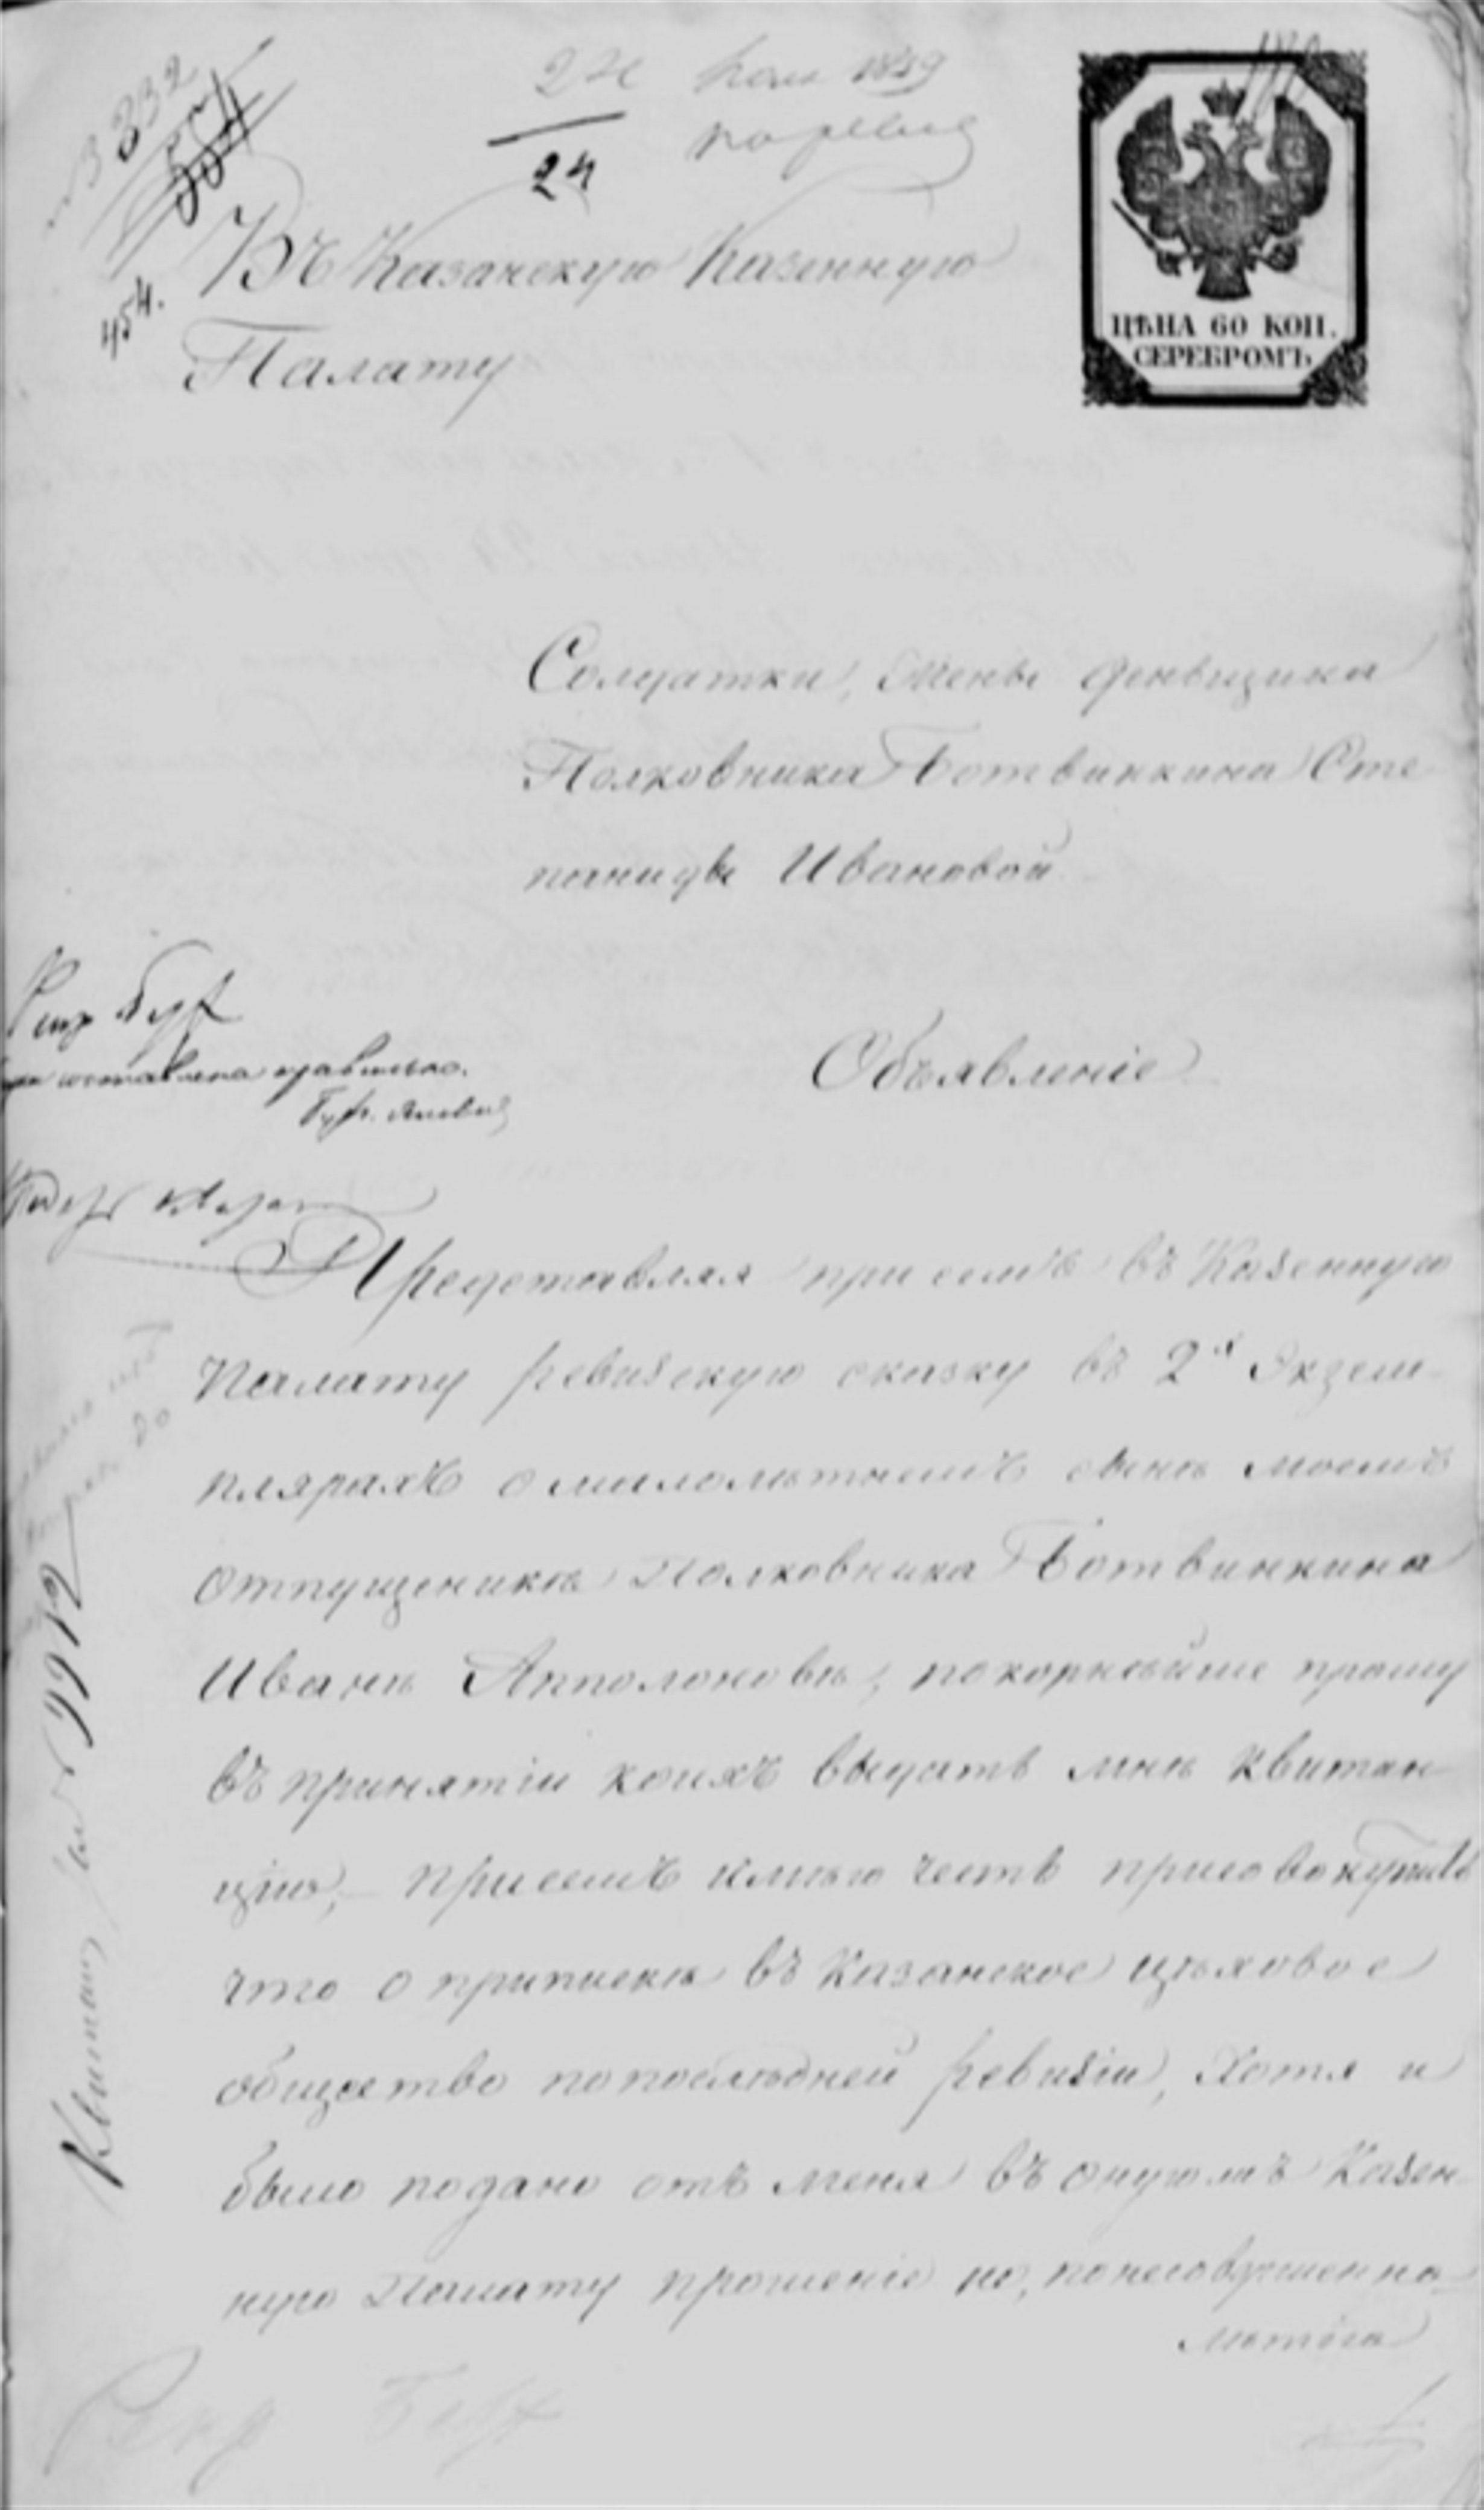 332
24
454.
ЦѢНА 60 КОП.
СЕРЕБРОМЪ
Въ Казанскую Казенную
Палату
Солдатки, жены деньщика
Полковника Ботвинкина Сте
паниды Ивановой
Объявленіе
составлена правильно.
Представляя при семъ въ Казенную
Палату ревизскую сказку въ 2х Экзем-
плярахъ о малолѣтнемъ сынѣ моемъ
отпущеникѣ Полковника Ботвинкина
Иванѣ Апполоновѣ, покорнѣйше прошу
въ принятіи коихъ выдать мнѣ квитан
цію, при семъ имѣю честь присовокупить
что о припискѣ въ Казанское цѣховое
общество по послѣдней ревизіи, Хотя и
было подано отъ меня въ Казен
ную Палату прошеніе но, по несовершенно
лѣтію
Квитан 9912